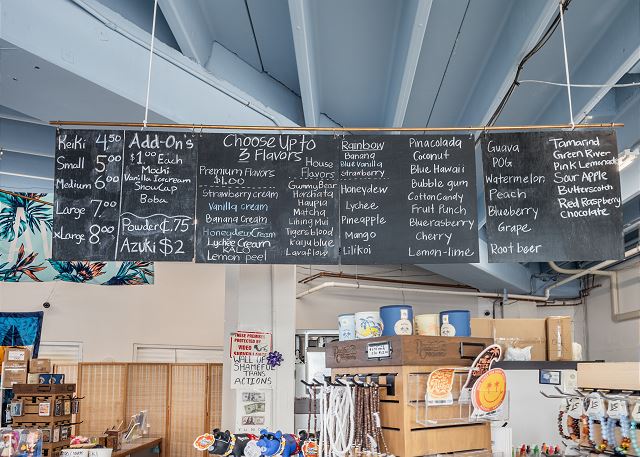 Keiki 4.50
Small 5.00
Medium 6.00
Large 7.00
xLarge 8.00
Add-On's
$1.00 Each
Mochi
Vanilla Icecream
SnowCap
Boba
Powder ¢.75
Azuki $2
Choose Up to
3 Flavors
Premium Flavors
$1.00
Strawberry cream
Vanilla cream
Banana Cream
Honeydew Cream
Lychee Cream
KALO
Lemon peel
House
Flavors
Gummy Bear
Horchata
Haupia
Matcha
Lihing Mui
Tigers blood
Kaiju blue
Lava flow
Rainbow
Banana
Blue Vanilla
Strawberry
Honeydew
Lychee
Pineapple
Mango
Lilikoi
Pinacolada
Coconut
Blue Hawaii
Bubble gum
Cotton Candy
Fruit Punch
Blue rasberry
Cherry
Lemon-lime
Guava
POG
Watermelon
Peach
Blueberry
Grape
Root beer
Tamarind
Green River
Pink Lemonade
Sour Apple
Butterscotch
Red Raspberry
Chocolate
THESE PREMISES
PROTECTED BY
VIDEO
SURVEILLANCE
WALL OF
SHAMEFUL
THANS
ACTIONS